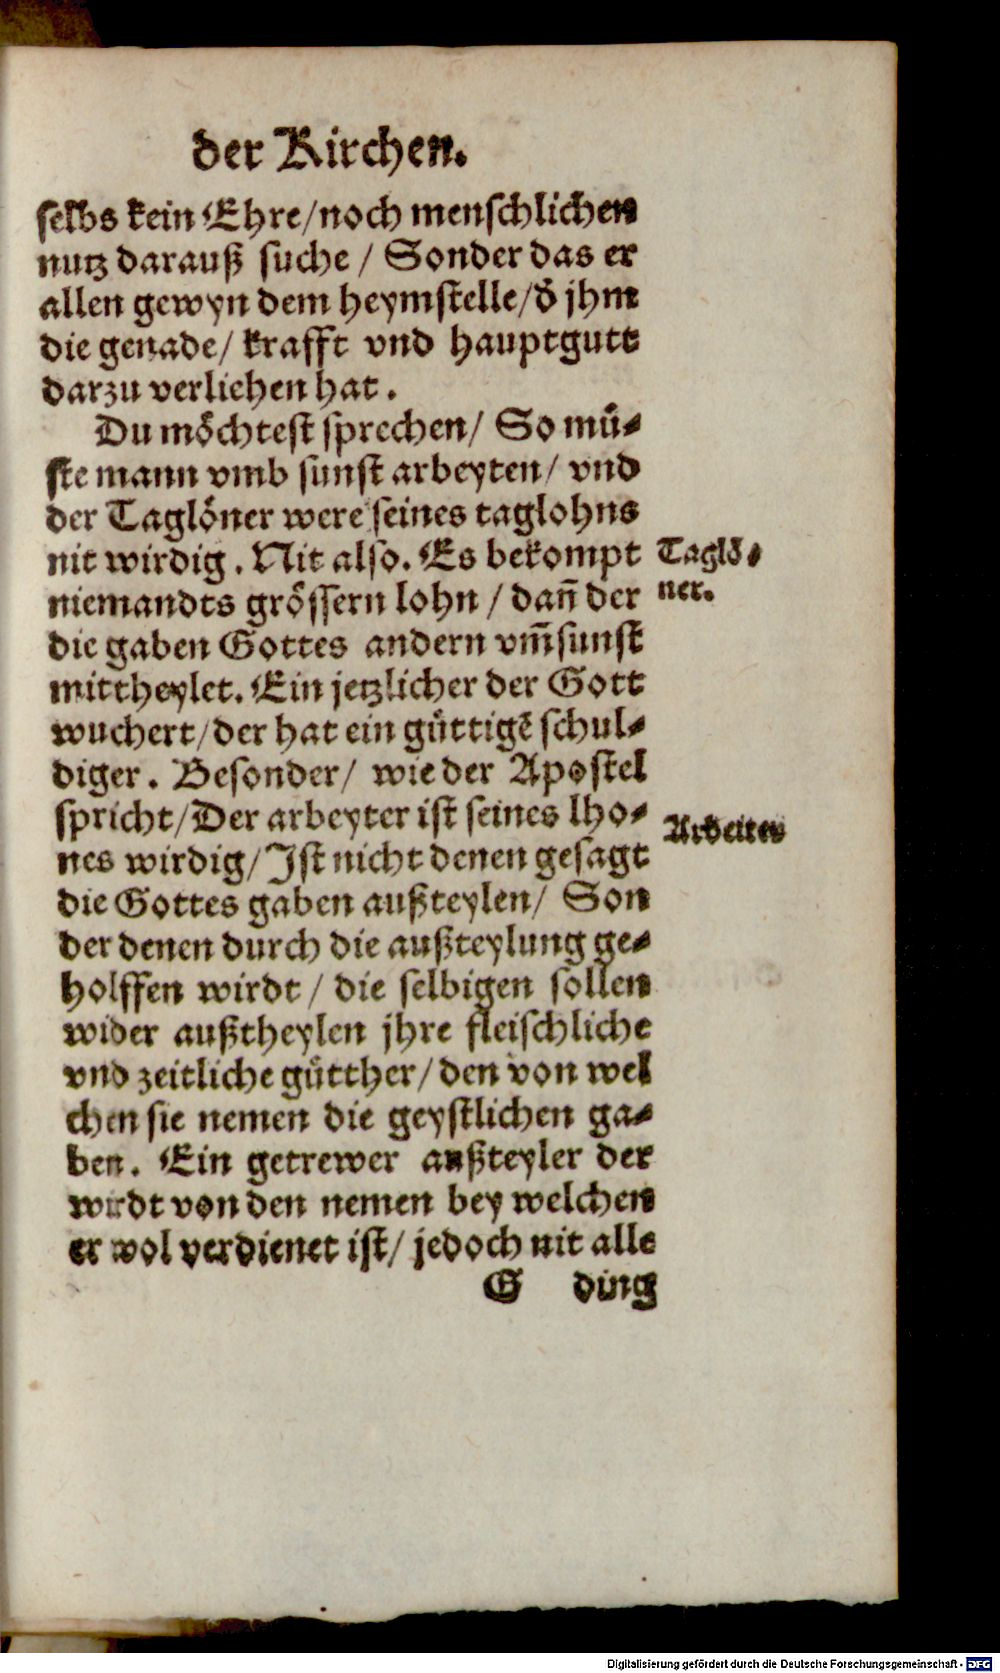 der Kirchen.
selbs kein Ehre/noch menschlichen
nutz darauß suche / Sonder das er
allen gewyn dem heymstelle/d̄ jhm
die genade/ krafft vnd hauptgutt
darzu verliehen hat.
Du möchtest sprechen/ So mü-
ste mann vmb sunst arbeyten/ vnd
der Taglöner were seines taglohns
nit wirdig. Nit also. Es bekompt
Taglö-
ner.
niemandts grössern lohn / dañ der
die gaben Gottes andern vm̃sunst
mittheylet. Ein jetzlicher der Gott
wuchert/der hat ein güttigẽ schul-
diger. Besonder/ wie der Apostel
spricht/Der arbeyter ist seines lho-
Arbeiter
nes wirdig/Ist nicht denen gesagt
die Gottes gaben außteylen/ Son
der denen durch die außteylung ge-
holffen wirdt / die selbigen sollen
wider außtheylen jhre fleischliche
vnd zeitliche gütther/den von wel
chen sie nemen die geystlichen ga-
ben. Ein getrewer außteyler der
wirdt von den nemen bey welchen
er wol verdienet ist/ jedoch nit alle
G ding
Digitalisierung gefördert durch die Deutsche Forschungsgemeinschaft - DFG